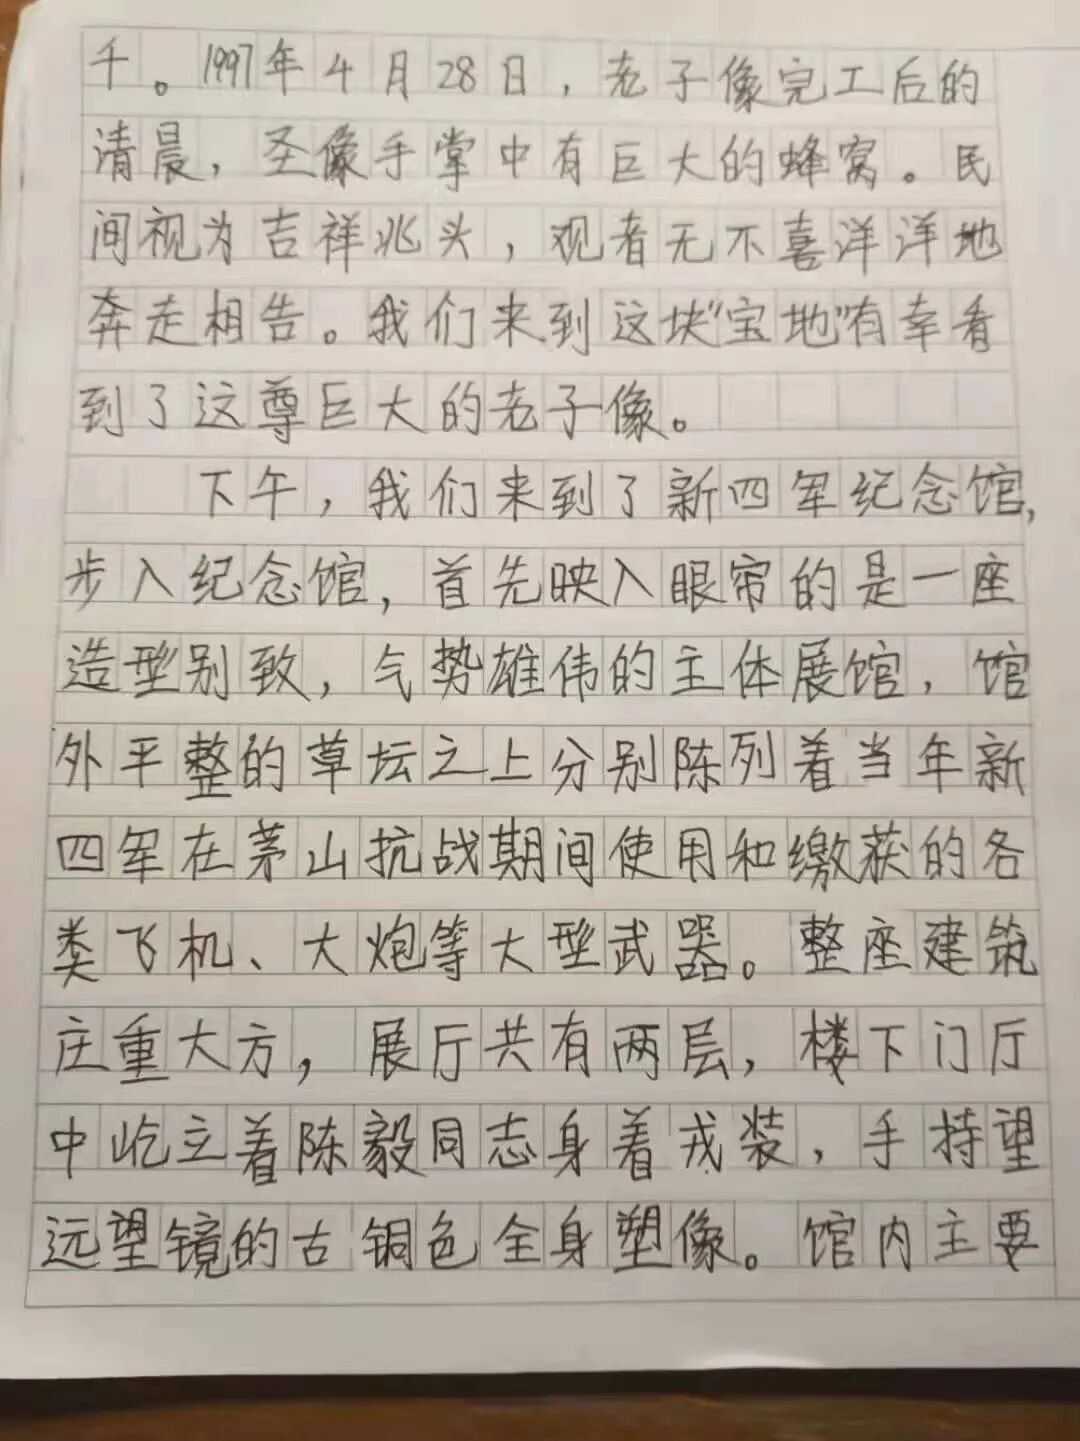 千。1997年4月28日，老子像完工后的
清晨，圣像手掌中有巨大的蜂窝。民
间视为吉祥兆头，观者无不喜洋洋地
奔走相告。我们来到这块"宝地"有幸看
到了这尊巨大的老子像。
下午，我们来到了新四军纪念馆，
步入纪念馆，首先映入眼帘的是一座
造型别致，气势雄伟的主体展馆，馆
外平整的草坛之上分别陈列着当年新
四军在茅山抗战期间使用和缴获的各
类飞机、大炮等大型武器。整座建筑
庄重大方，展厅共有两层，楼下门厅
中屹立着陈毅同志身着戎装，手持望
远望镜的古铜色全身塑像。馆内主要